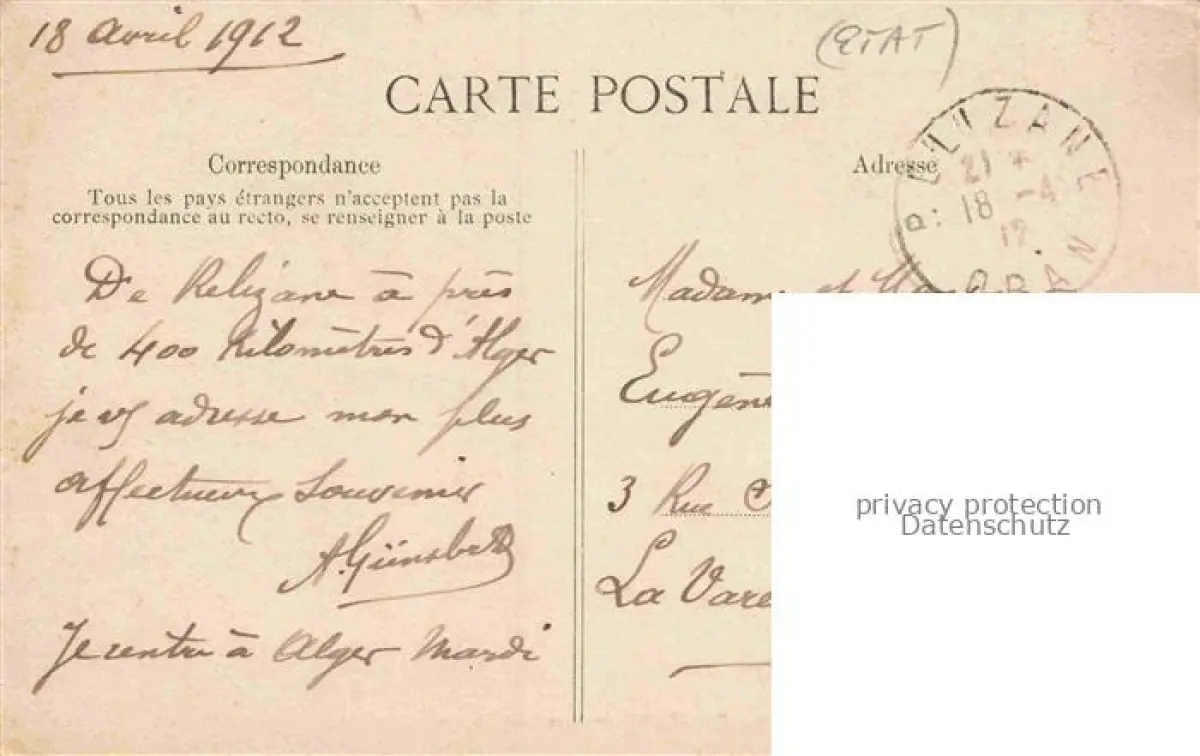 18 avril 1912
(ETAT)
CARTE POSTALE
Correspondance
Tous les pays étrangers n'acceptent pas la
correspondance au recto, se renseigner à la poste
De Relizane à près
de 400 Kilomètres d'Alger
je vs adresse mon plus
affectueux souvenir
A. Günsbe
Je rentre à Alger Mardi
Adresse
RELIZANE
21
18 -4
12
ORAN
Madame et
Eugène
3 Rue
La Vare
privacy protection
Datenschutz